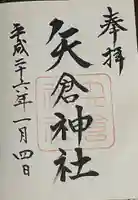 奉拝
矢倉神社
平成二十六年一月四日